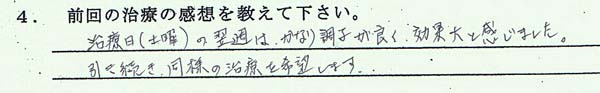 4. 前回の治療の感想を教えて下さい。
治療日(土曜)の翌週は、かなり調子が良く、効果大と感じました。
引き続き、同様の治療を希望します。